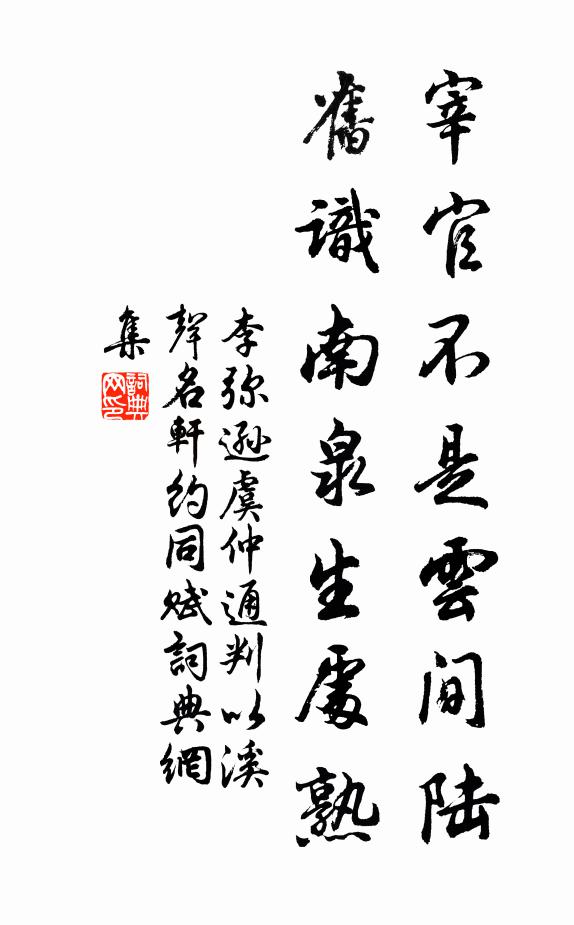 宰官不是雲間陆
舊識南泉生處熟
李弥遜虞仲通判以溪
聲名軒約同赋詞典網
集
詞典网印